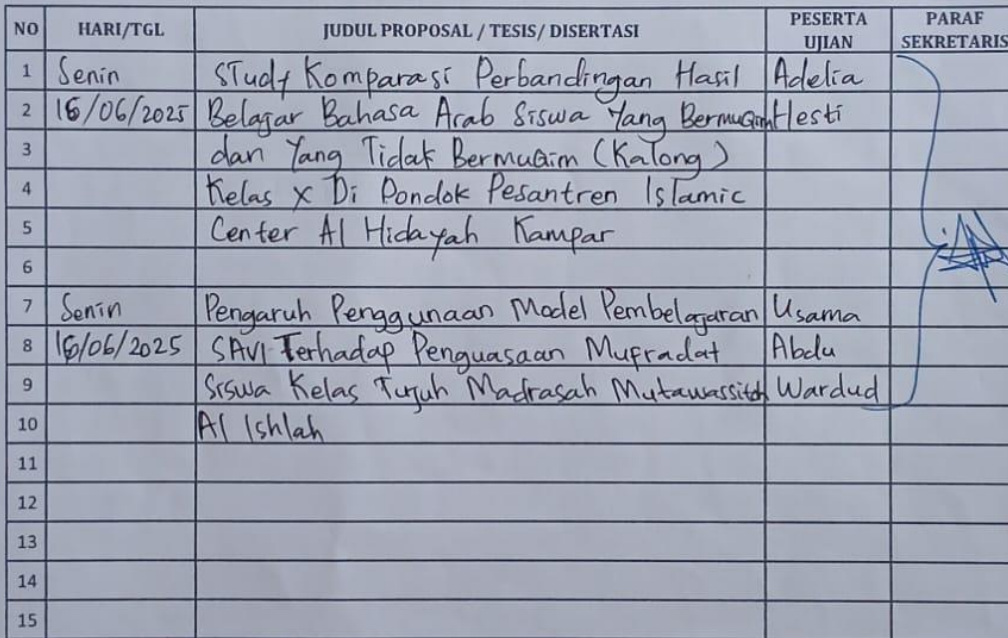 NO HARI/TGL JUDUL PROPOSAL / TESIS/ DISERTASI PESERTA UJIAN PARAF SEKRETARIS
1 Senin Study Komparasi Perbandingan Hasil Adelia
2 16/06/2025 Belajar Bahasa Arab Siswa Yang Bermuqim Hesti
3 dan Yang Tidak Bermuqim (Kalong)
4 Kelas X Di Pondok Pesantren Islamic
5 Center Al Hidayah Kampar
6
7 Senin Pengaruh Penggunaan Model Pembelajaran Usama
8 16/06/2025 SAVI Terhadap Penguasaan Mufradat Abdu
9 Siswa Kelas Tujuh Madrasah Mutawassitoh Wardud
10 Al Ishlah
11
12
13
14
15